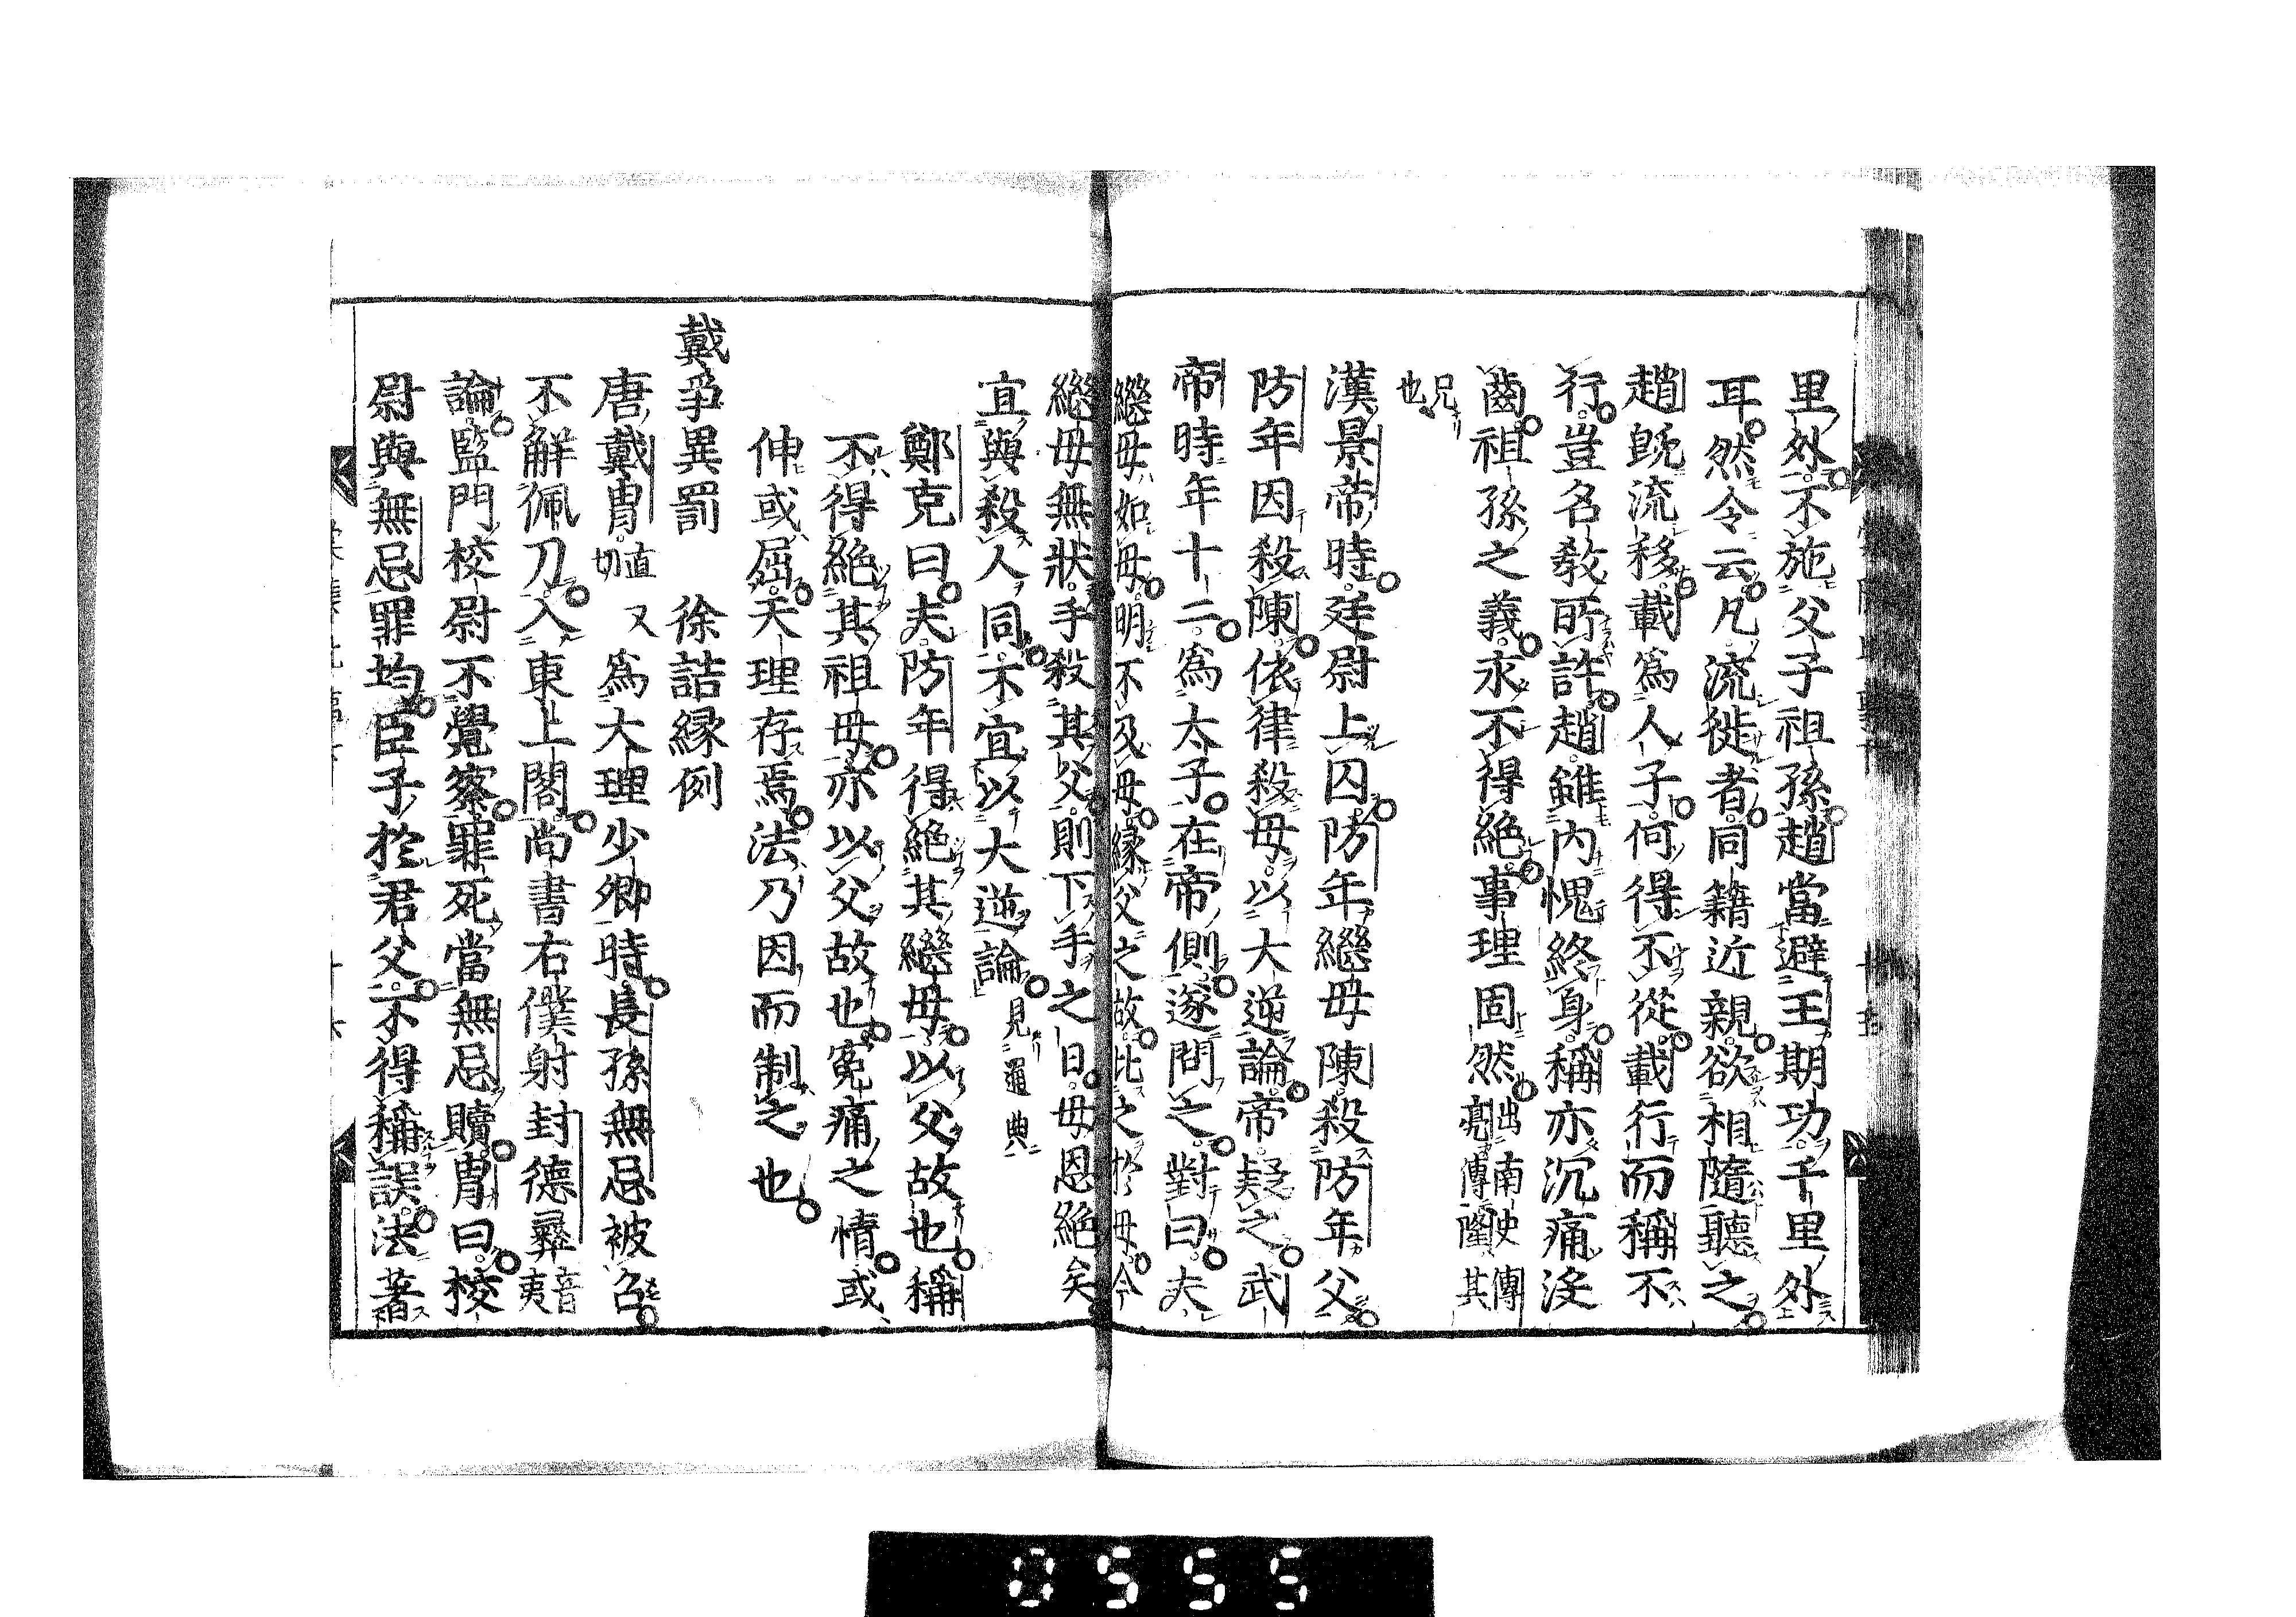 里外不施父子祖孫趙當避王期功千里外
耳然令云凡流徙者同籍近親欲相隨聽之
趙既流移載爲人子何得不從載行而稱不
行豈名教所許趙雖內愧終身稱亦沉痛没
齒祖孫之義永不得絶事理固然出南史傅亮傳隆其
兄也
漢景帝時廷尉上囚防年繼母陳殺防年父
防年因殺陳依律殺母以大逆論帝疑之武
帝時年十二爲太子在帝側遂問之對曰夫
繼母如母明不及母縁父之故比之於母今
繼母無狀手殺其父則下手之日母恩絶矣
宜與殺人同不宜以大逆論見通典
鄭克曰夫防年得絶其繼母以父故也稱
不得絶其祖母亦以父故也寃痛之情或
伸或屈天理存焉法乃因而制之也
戴爭異罰　徐詰縁例
唐戴胄直又切爲大理少卿時長孫無忌被召
不觧佩刀入東上閤尚書右僕射封德彝音夷
論監門校尉不覺察罪死當無忌贖胄曰校
尉與無忌罪均臣子於君父不得稱誤法著
0555